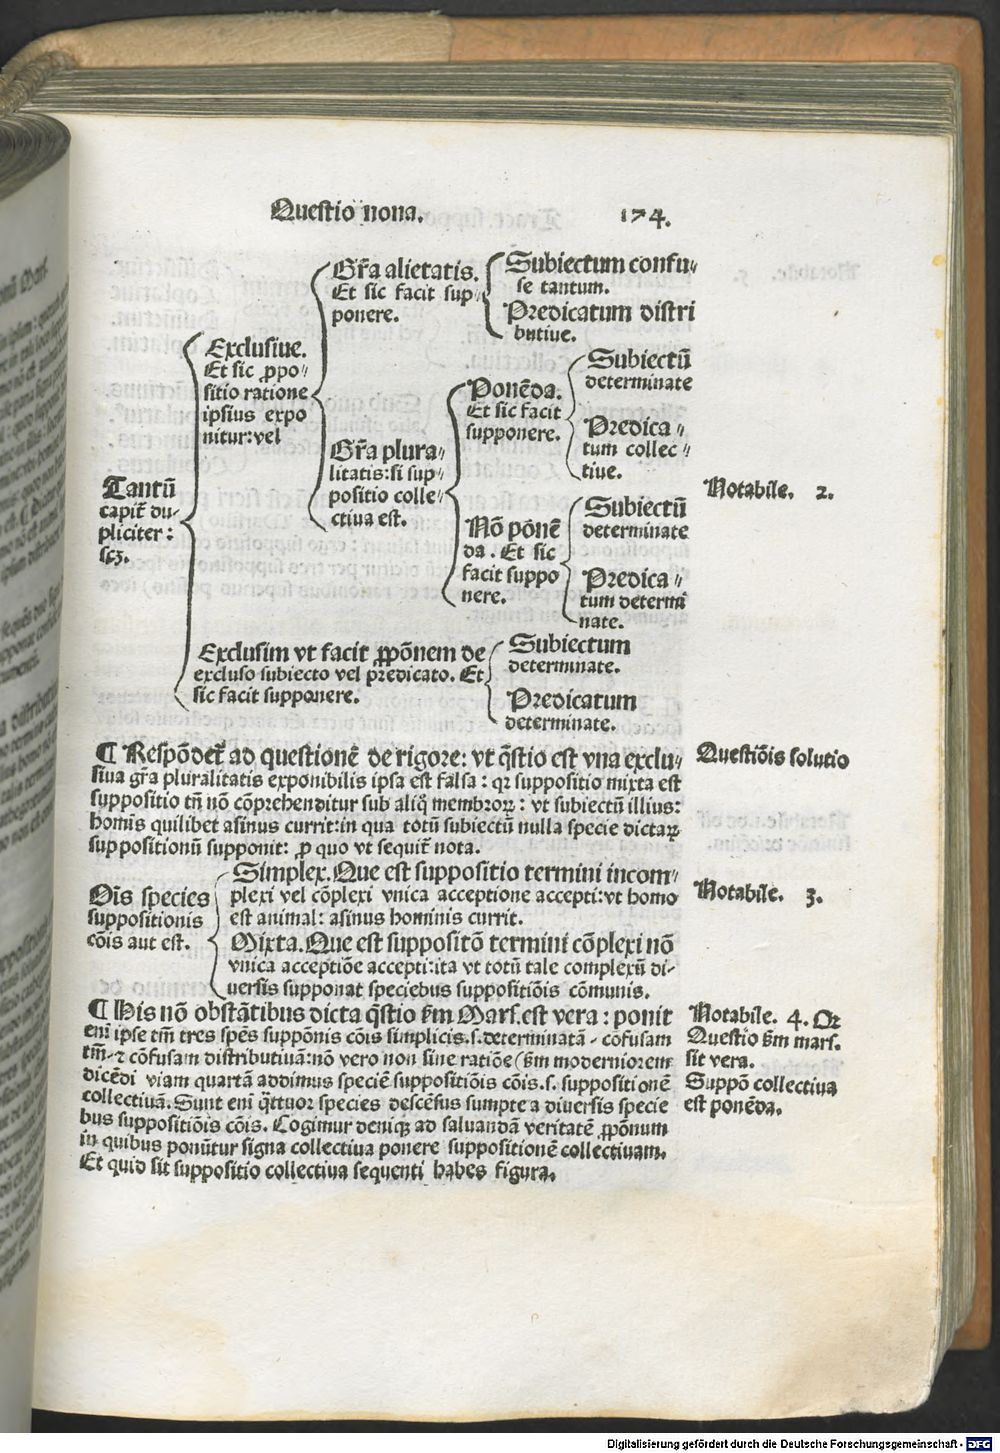 Questio nona. 174.
Tantū
capit̄ du-
pliciter:
scꝫ.
Exclusiue.
Et sic ꝓpo-
sitio ratione
ipsius expo
nitur: vel
Gr̄a alietatis.
Et sic facit sup-
ponere.
Subiectum confu-
se tantum.
Predicatum distri
butiue.
Gr̄a plura-
litatis: si sup-
positio colle-
ctiua est.
Ponēda.
Et sic facit
supponere.
Subiectū
determinate
Predica-
tum collec-
tiue.
Nō ponē
da. Et sic
facit suppo
nere.
Subiectū
determinate
Predica-
tum determi
nate.
Exclusim vt facit ꝓpōnem de
excluso subiecto vel predicato. Et
sic facit supponere.
Subiectum
determinate.
Predicatum
determinate.
Notabile. 2.
¶ Respōdet̄ ad questionē de rigore: vt q̄stio est vna exclu-
siua gr̄a pluralitatis exponibilis ipsa est falsa: qꝛ suppositio mixta est
suppositio tn̄ nō cōprehenditur sub aliq̊ membroꝝ: vt subiectū illius:
homīs quilibet asinus currit: in qua totū subiectū nulla specie dictaꝝ
suppositionū supponit: ꝓ quo vt sequit̄ nota.
Questiōis solutio
Oīs species
suppositionis
cōis aut est.
Simplex. Que est suppositio termini incom-
plexi vel cōplexi vnica acceptione accepti: vt homo
est animal: asinus hominis currit.
Mixta. Que est suppositō termini cōplexi nō
vnica acceptiōe accepti: ita vt totū tale complexū di-
uersis supponat speciebus suppositiōis cōmunis.
Notabile. 3.
¶ His nō obstātibus dicta q̄stio ẜm Mars. est vera: ponit
eni̅ ipse tm̄ tres spēs suppōnis cōis simplicis. s. determinatā - cōfusam
tm̄ ⁊ cōfusam distributiuā: nō vero non sine ratiōe (ẜm moderniorem
dicēdi viam quartā addimus speciē suppositiōis cōis. s. suppositionē
collectiuā. Sunt eni̅ q̄ttuor species descēsus sumpte a diuersis specie
bus suppositiōis cōis. Cogimur deniqꝫ ad saluandā veritatē ꝓpōnum
in quibus ponūtur signa collectiua ponere suppositionē collectiuam.
Et quid sit suppositio collectiua sequenti habes figura.
Notabile. 4. Qꝛ
Questio ẜm mars.
sit vera.
Suppō collectiua
est ponēda.
Digitalisierung gefördert durch die Deutsche Forschungsgemeinschaft - DFG